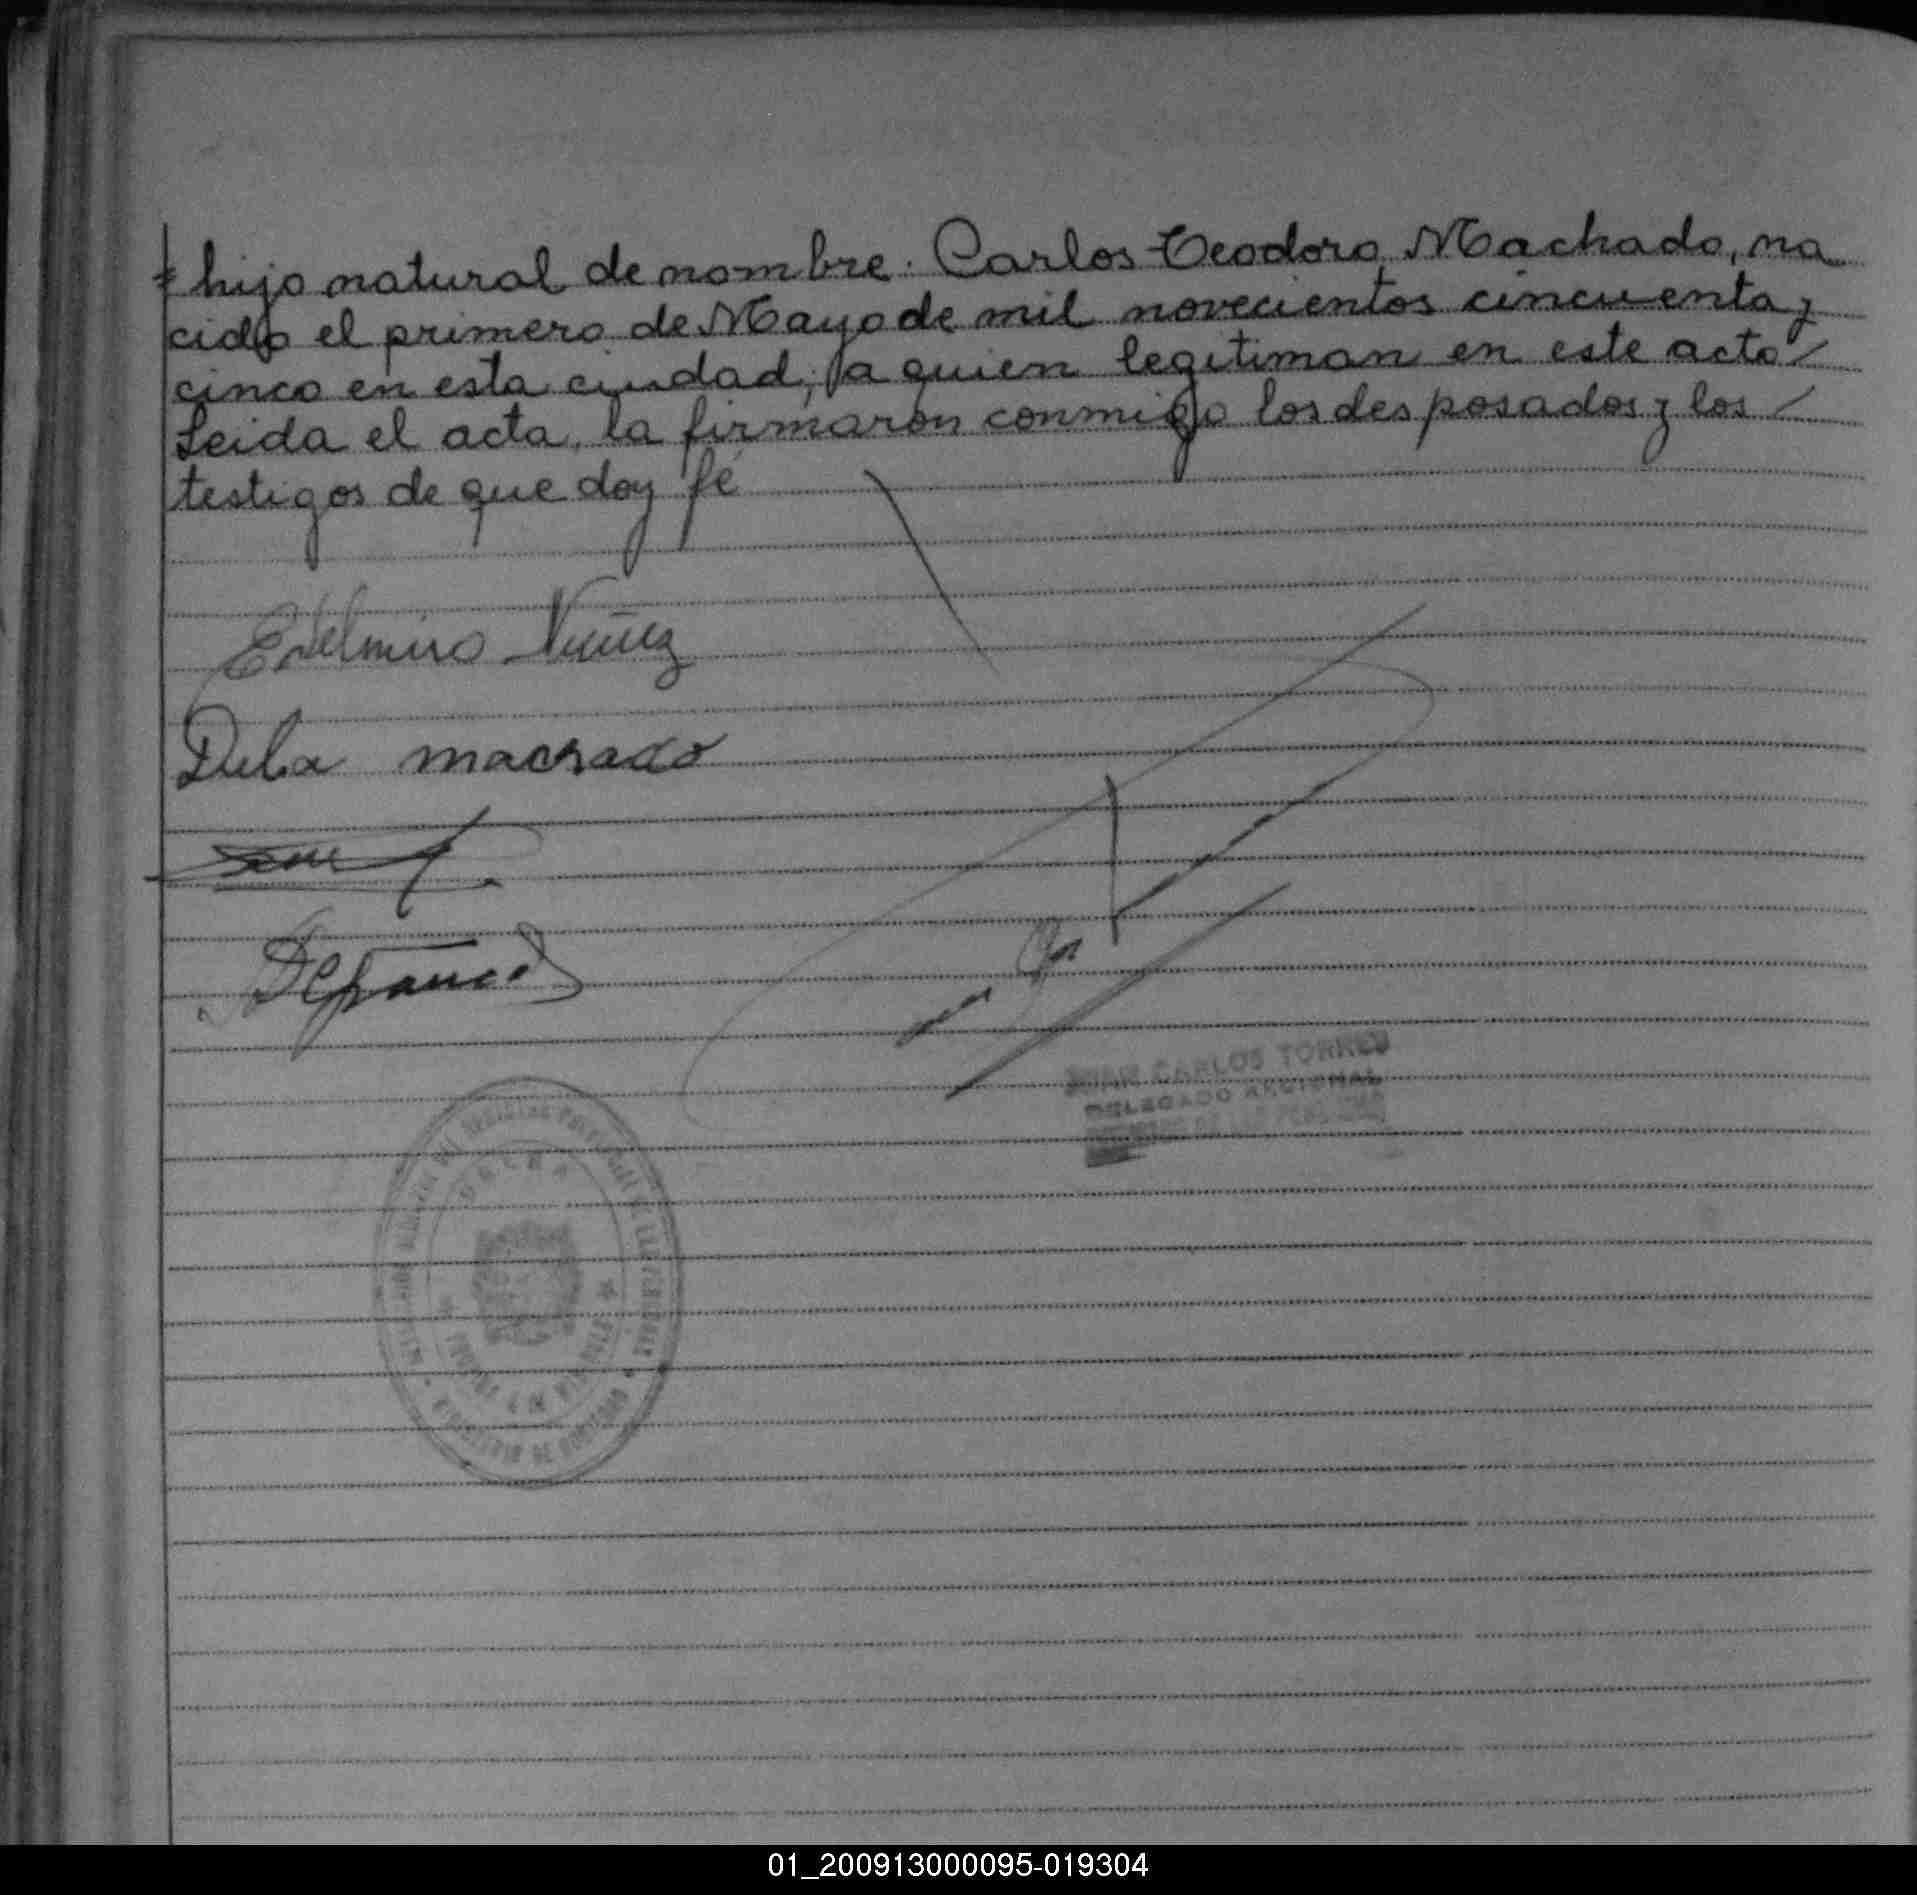 hijo natural de nombre. Carlos Teodoro Machado, na
cido el primero de Mayo de mil novecientos cincuenta y
cinco en esta ciudad, a quien legitiman en este acto
Leida el acta, la firmaron conmigo los desposados y los
testigos de que doy fé
Edelmiro Nuñez
Delia machado
JUAN CARLOS TORRES
DELEGADO REGIONAL
01_200913000095-019304